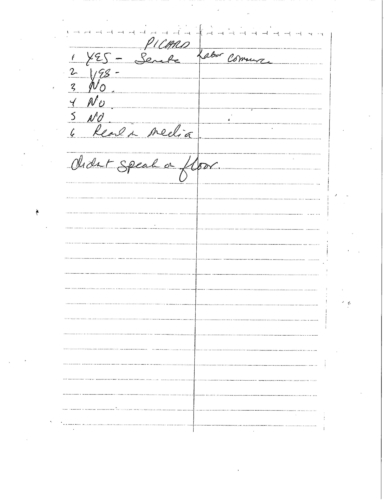 PICARD
1 YES - Senate Labor Commerce
2 YES -
3 NO.
4 NO
5 NO
6 Read in media
didn't speak on floor.